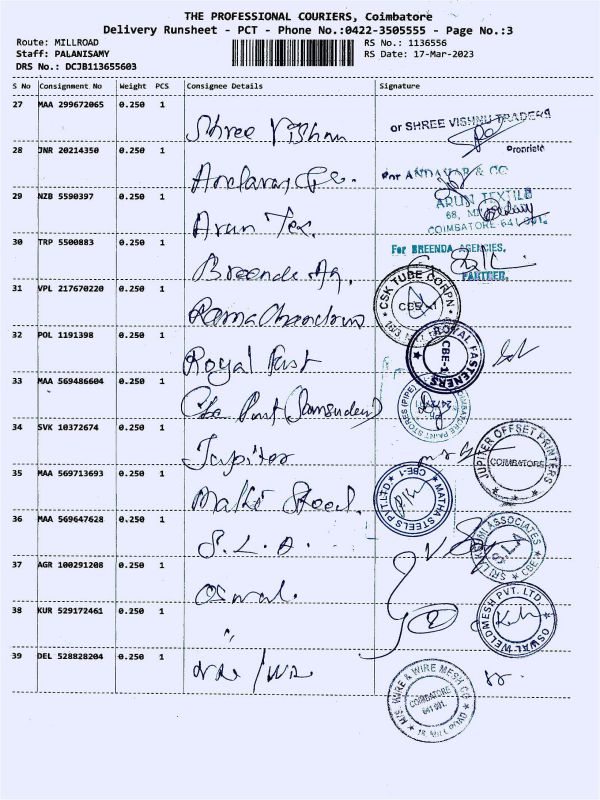 THE PROFESSIONAL COURIERS, Coimbatore
Delivery Runsheet - PCT - Phone No.:0422-3505555 - Page No.:3
Route: MILLROAD
RS No.: 1136556
Staff: PALANISAMY
RS Date: 17-Mar-2023
DRS No.: DCJB113655603
S No Consignment No Weight PCS Consignee Details Signature
27 MAA 299672065 0.250 1
Shree Vishnu
or SHREE VISHNU TRADERS
Proprieto
28 JNR 20214350 0.250 1
For ANDAVAR & CO
29 NZB 5590397 0.250 1
Arun Tex.
ARUN TEXTILE
68, 
COIMBATORE 641 001.
30 TRP 5500883 0.250 1
Breenda Ag.
For BREENDA AGENCIES,
PARTNER.
31 VPL 217670220 0.250 1
Rama Chandran
CSK TUBE CORPN
CBE-1
32 POL 1191398 0.250 1
Royal Fast
ROYAL FASTENERS
CBE-1
33 MAA 569486604 0.250 1
COIMBATORE PAINT STORES (PIPE)
34 SVK 10372674 0.250 1
Jupiter
JUPITER OFFSET PRINTERS
COIMBATORE
35 MAA 569713693 0.250 1
Matha Steel.
MATHA STEELS PVT.LTD
CBE-1
36 MAA 569647628 0.250 1
S. L. A.
SRI LAKSHMI ASSOCIATES
S.L.A
CBE
37 AGR 100291208 0.250 1
Oswal.
38 KUR 529172461 0.250 1
"
OSWAL WELDMESH PVT. LTD.
39 DEL 528828204 0.250 1
M/S. WIRE & WIRE MESH CO
COIMBATORE
641 001.
18, MILL ROAD